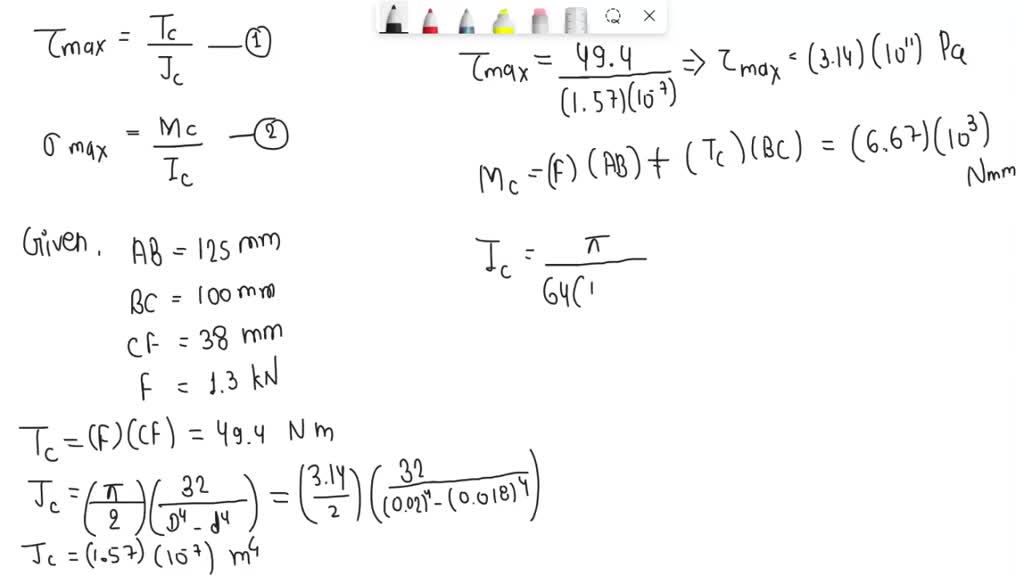 τmax = Tc / Jc — ①
σmax = Mc / Ic — ②
Given. AB = 125 mm
BC = 100 mm
CF = 38 mm
F = 1.3 kN
Tc = (F)(CF) = 49.4 Nm
Jc = (π / 2)(32 / D⁴ - d⁴) = (3.14 / 2)(32 / (0.02)⁴ - (0.018)⁴)
Jc = (1.57)(10⁻⁷) m⁴
τmax = 49.4 / (1.57)(10⁻⁷) ⇒ τmax = (3.14)(10¹¹) Pa
Mc = (F)(AB) + (Tc)(BC) = (6.67)(10³)
Nmm
Ic = π / 64(